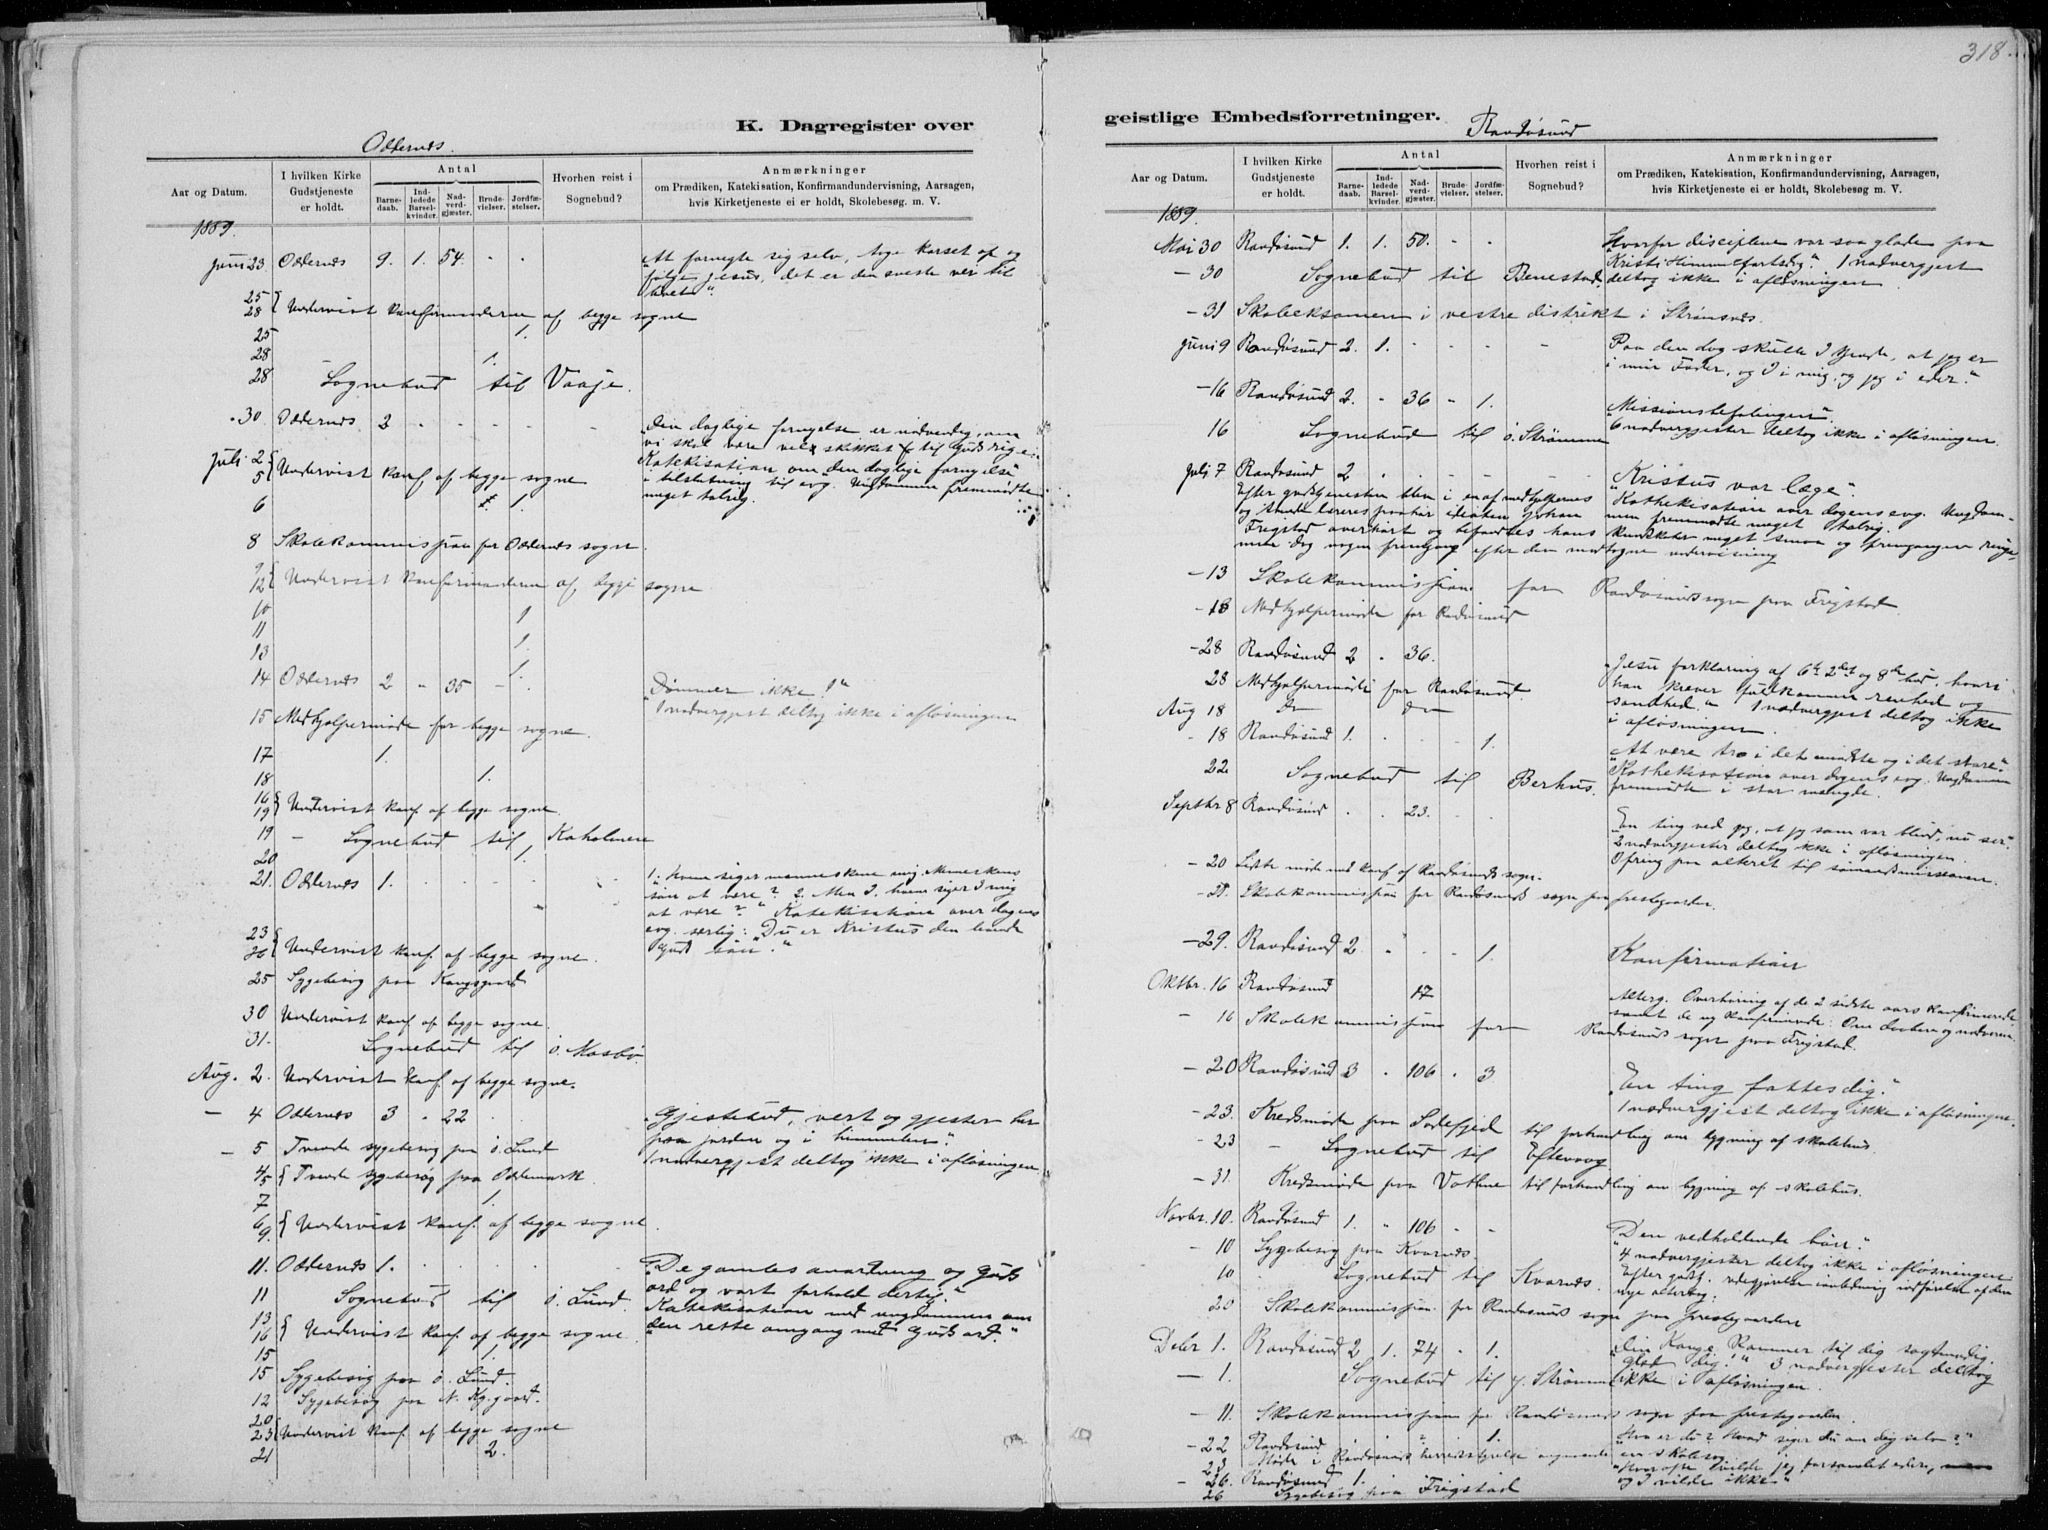 318.
K. Dagregister over
Oddernes.
Aar og Datum.
I hvilken Kirke Gudstjeneste er holdt.
Antal
Barne-daab.
Ind-ledede Barsel-kvinder.
Nad-verd-gjæster.
Brude-vielser.
Jordfæ-stelser.
Hvorhen reist i Sognebud?
Anmærkninger
om Prædiken, Katekisation, Konfirmandundervisning, Aarsagen,
hvis Kirketjeneste ei er holdt, Skolebesøg. m. V.
1889.
Juni 23. Oddernes 9. 1. 54. " "
"At fornegte sig selv, tage korset op og
følge Jesus, det er den eneste vei til
livet."
25 28 { Undervist konfirmanderne af begge sogne
25 1.
28 1.
28 Sognebud til Vaaje.
30 Oddernes 2
Den daglige fornyelse er nødvendig, om
vi skal være vel skikket til Guds rige.
Katekisation om "den daglige fornyelse"
i tilslutning til evg. Ungdommen fremmødte
meget talrig.
Juli 2 5 { Undervist konf. af begge sogne
6 1.
8 Skolekommission for Oddernes sogn.
9 12 { Undervist konfirmanderne af begge sogne
10 1
11 1.
13 1.
14 Oddernes 2 " 35
"Dømmer ikke!"
1 nadvergjest deltog ikke i afløsningen
15 Medhjælpermøde for begge sogne.
17 1.
18 1.
16 19 { Undervist konf. af begge sogne
19 Sognebud til Kaholmen
20 1.
21. Oddernes 1.
1. Hvem siger menneskene mig, Menneskens
søn at være? 2. Men I, hvem siger I mig
at være?" Katekisation over dagens
evg. særlig: "Du er Kristus den levende
Guds søn."
23 26 { Undervist konf. af begge sogne.
25 Sygebesøg paa Kongsgaard
30 Undervist konf. af begge sogne.
31. Sognebud til ö. Mosbö.
Aug. 2. Undervist konf. af begge sogne.
4 Oddernes 3 " 22
Gjestebud, vert og gjester her
paa jorden og i himmelen."
1 nadvergjest deltog ikke i afløsningen
5 Tvende sygebesøg paa ö. Lund
4/5 { Tvende sygebesøg paa Oddemark.
7 1.
6 9. { Undervist konf. af begge sogne
11. Oddernes 1.
"De gamles anordning og Guds
ord og vort forhold dertil."
Katekisation med ungdommen om
"den rette omgang med Guds ord."
11 Sognebud til ö. Lund.
13 16 { Undervist konf. af begge sogne
15 1.
15 Sygebesøg paa ö. Lund.
12 Sygebesøg paa N. Kg.gaard.
20 23 { Undervist konf. af begge sogne
21 2.
geistlige Embedsforretninger.
Randøsund
Aar og Datum.
I hvilken Kirke Gudstjeneste er holdt.
Antal
Barne-daab.
Ind-ledede Barsel-kvinder.
Nad-verd-gjæster.
Brude-vielser.
Jordfæ-stelser.
Hvorhen reist i Sognebud?
Anmærkninger
om Prædiken, Katekisation, Konfirmandundervisning, Aarsagen,
hvis Kirketjeneste ei er holdt, Skolebesøg m. V.
1889.
Mai 30 Randøsund 1. 1. 50. " "
Hvorfor disciplene var saa glade paa
Kristi Himmelfartsdag". 1 nadvergjest
deltog ikke i afløsningen
- 30 Sognebud til Benestad.
- 31 Skoleeksamen i vestre distrikt i Strømsnes.
Juni 9 Randøsund 2. 1.
Paa den dag skulle I kjende, at jeg er
i min Fader, og I i mig og jeg i eder."
- 16 Randøsund 2. " 36 " 1.
"Missionsbefalingen"
6 nadvergjester deltog ikke i afløsningen.
16 Sognebud til ö. Strømme
Juli 7 Randøsund 2
"Kristus vor læge".
Kathekisation over dagens evg. Ungdom-
men fremmødte meget talrig.
Efter gudstjenesten blev i en af medhjelpernes
og lærers paahør Johan
Frigstad overhørt og befandtes hans kundskaber meget smaa og fremgangen ringe,
men dog nogen fremgang efter den modtagne undervisning
- 13 Skolekommission for Randøsunds sogn paa Frigstad.
- 18 Medhjælpermøde for Randøsund
- 28 Randøsund 2 " 36.
"Jesu forklaring af 6te 2det og 8de bud, hvori
han kræver fuldkommen renhed og
sandhed." 1 nadvergjest deltog ikke
i afløsningen.
28 Medhjælpermøde for Randøsund.
Aug 18 Do Do
- 18 Randøsund 1. 1.
At være tro i det mindste og i det store."
Kathekisation over dagens evg. Ungdommen
fremmødte i stor mængde.
22 Sognebud til Berhus.
Septbr 8 Randøsund 23.
"En ting ved jeg, at jeg som var blind, nu ser."
2 nadvergjester deltog ikke i afløsningen.
Ofring paa alteret til sømandsmissionen.
- 20 Sidste møde med konf. af Randøsunds sogn.
Skolekommission for Randøsunds sogn paa prestegaarden.
- 29. Randøsund 2. " " 1.
Konfirmation
Oktbr. 16 Randøsund 17
Alterg. Overhøring af de 2 sidste aars konfirmerede
samt de ny konfirmerede: Om daaben og nadveren.
- 16 Skolekommission for Randøsunds sogn paa Frigstad.
- 20 Randøsund 3 " 106 " 3
"En ting fattes dig."
1 nadvergjest deltog ikke i afløsningen.
- 23. Kredsmøde paa Dolefjed til forhandling om bygning af skolehus.
- 23 Sognebud til Eftevaag
- 31. Kredsmøde paa Vothne til forhandling om bygning af skolehus.
Novbr. 10. Randøsund 1. " 106
"Den vedholdende bøn."
4 nadvergjester deltog ikke i afløsningen
- 10 Sygebesøg paa Kvarnes.
10 Sognebud til Kvarnes.
20 Skolekommission for Randøsunds sogn paa prestegaarden
Debr 1. Randøsund 2 1. 74 " 1.
"Din Konge kommer til dig sagtmodig,
glæd dig!" 3 nadvergjester deltog
ikke i afløsningen.
- 1. Sognebud til y. Strømme
- 11. Skolekommission for Randøsunds sogn paa prestegaarden.
- 22 Randøsund 1.
"Hvo er du? Hvad siger du om dig selv?"
23 Møde i Randøsunds herredsstyrelse angaaende en skolesag
- 26. Randøsund 1.
"Hvor ofte vilde jeg forsamlet eder,
og I vilde ikke"
26 Sygebesøg paa Frigstad